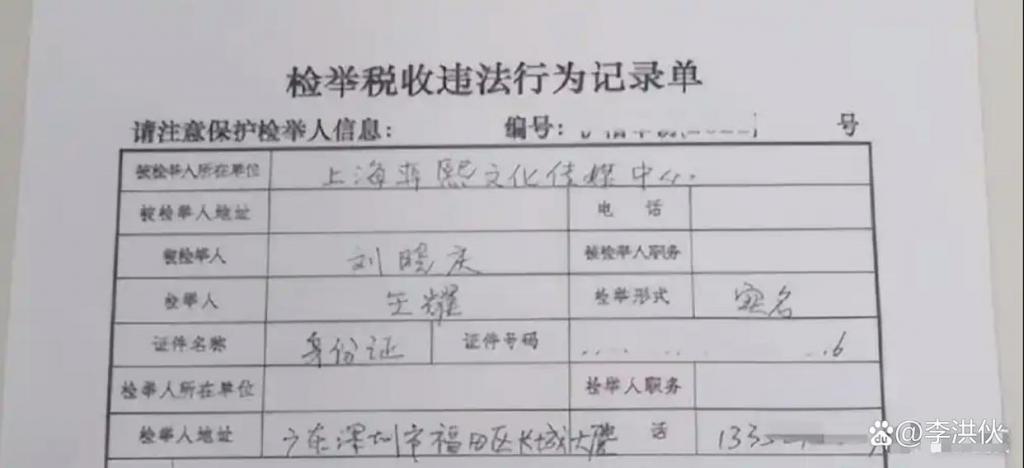 检举税收违法行为记录单
请注意保护检举人信息： 编号： 号
被检举人所在单位 上海 熙文化传媒中心
被检举人地址 电 话
被检举人 刘晓庆 被检举人职务
检举人 王耀 检举形式 实名
证件名称 身份证 证件号码 6
检举人所在单位 检举人职务
检举人地址 广东深圳市福田区长城大厦 话 133
@李洪伙